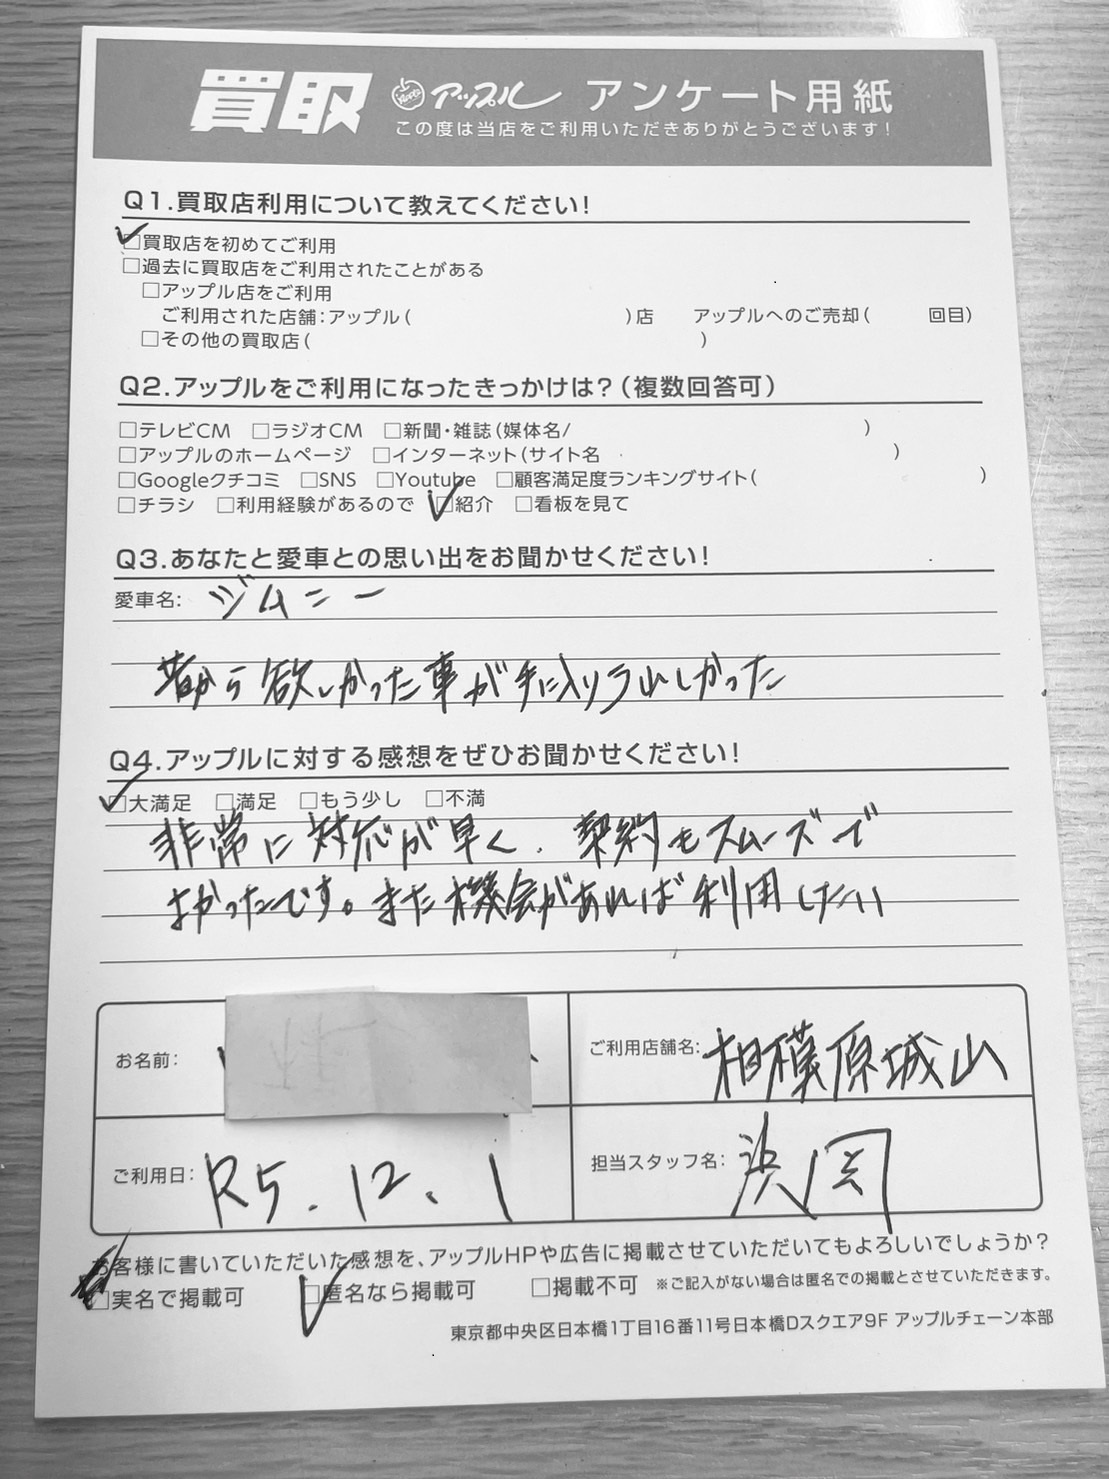 買取 アップル アンケート用紙
この度は当店をご利用いただきありがとうございます!
Q1.買取店利用について教えてください!
☑買取店を初めてご利用
□過去に買取店をご利用されたことがある
□アップル店をご利用
ご利用された店舗:アップル( )店 アップルへのご売却( 回目)
□その他の買取店( )
Q2.アップルをご利用になったきっかけは?(複数回答可)
□テレビCM □ラジオCM □新聞・雑誌(媒体名/ )
□アップルのホームページ □インターネット(サイト名 )
□Googleクチコミ □SNS □Youtube □顧客満足度ランキングサイト( )
□チラシ □利用経験があるので ☑紹介 □看板を見て
Q3.あなたと愛車との思い出をお聞かせください!
愛車名: ジムニー
昔から欲しかった車が手に入りうれしかった
Q4.アップルに対する感想をぜひお聞かせください!
☑大満足 □満足 □もう少し □不満
非常に対応が早く、契約もスムーズで
よかったです。また機会があれば利用したい
お名前: ご利用店舗名: 相模原城山
ご利用日: R5.12.1 担当スタッフ名:
お客様に書いていただいた感想を、アップルHPや広告に掲載させていただいてもよろしいでしょうか?
□実名で掲載可 ☑匿名なら掲載可 □掲載不可 ※ご記入がない場合は匿名での掲載とさせていただきます。
東京都中央区日本橋1丁目16番11号日本橋Dスクエア9F アップルチェーン本部